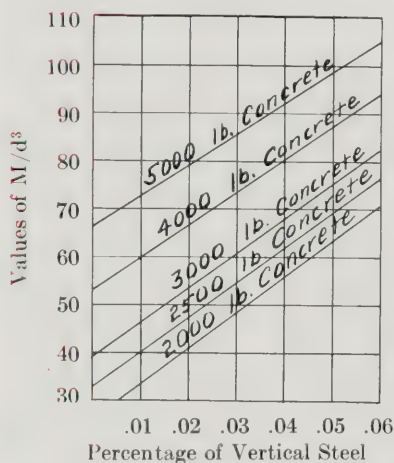 110
100
90
80
70
60
50
40
30
Values of M/d³
5000 lb. Concrete
4000 lb. Concrete
3000 lb. Concrete
2500 lb. Concrete
2000 lb. Concrete
.01 .02 .03 .04 .05 .06
Percentage of Vertical Steel